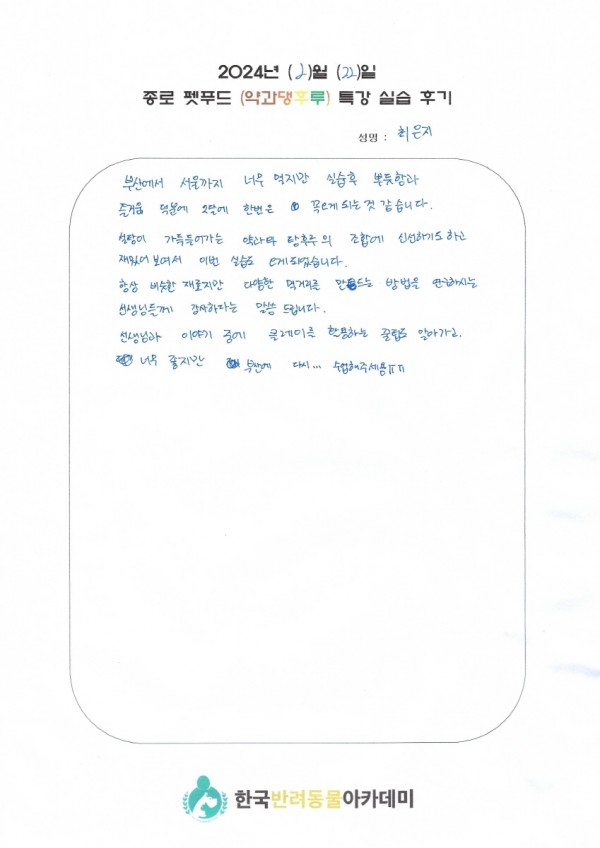 2024년 (2)월 (22)일
종로 펫푸드 (약과댕후루) 특강 실습 후기
성명 : 최은지
부산에서 서울까지 너무 멀지만 실습후 뿌듯함과
즐거움 덕분에 2달에 한번은 꼭오게되는것 같습니다.
설탕이 가득들어가는 약과와 탕후루의 조합에 신선하기도 하고
재밌어 보여서 이번 실습도 오게되었습니다.
항상 비슷한 재료지만 다양한 먹거리를 만드는 방법을 연구하시는
선생님들께 감사하다는 말씀 드립니다.
선생님과 이야기 중에 클레이를 활용하는 꿀팁도 알아가고.
너무 좋지만 부산에 다시... 수업해주세용ㅠㅠ
한국반려동물아카데미